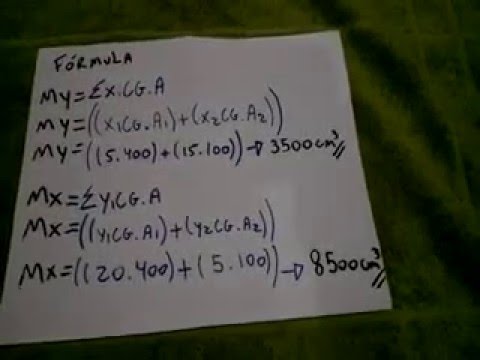 FÓRMULA
My=Σxi.CG.A
My=((x1CG.A1)+(x2CG.A2))
My=((5.400)+(15.100))→3500cm³//
Mx=Σy1CG.A
Mx=((y1CG.A1)+(y2CG.A2))
Mx=((20.400)+(5.100))→8500cm³//